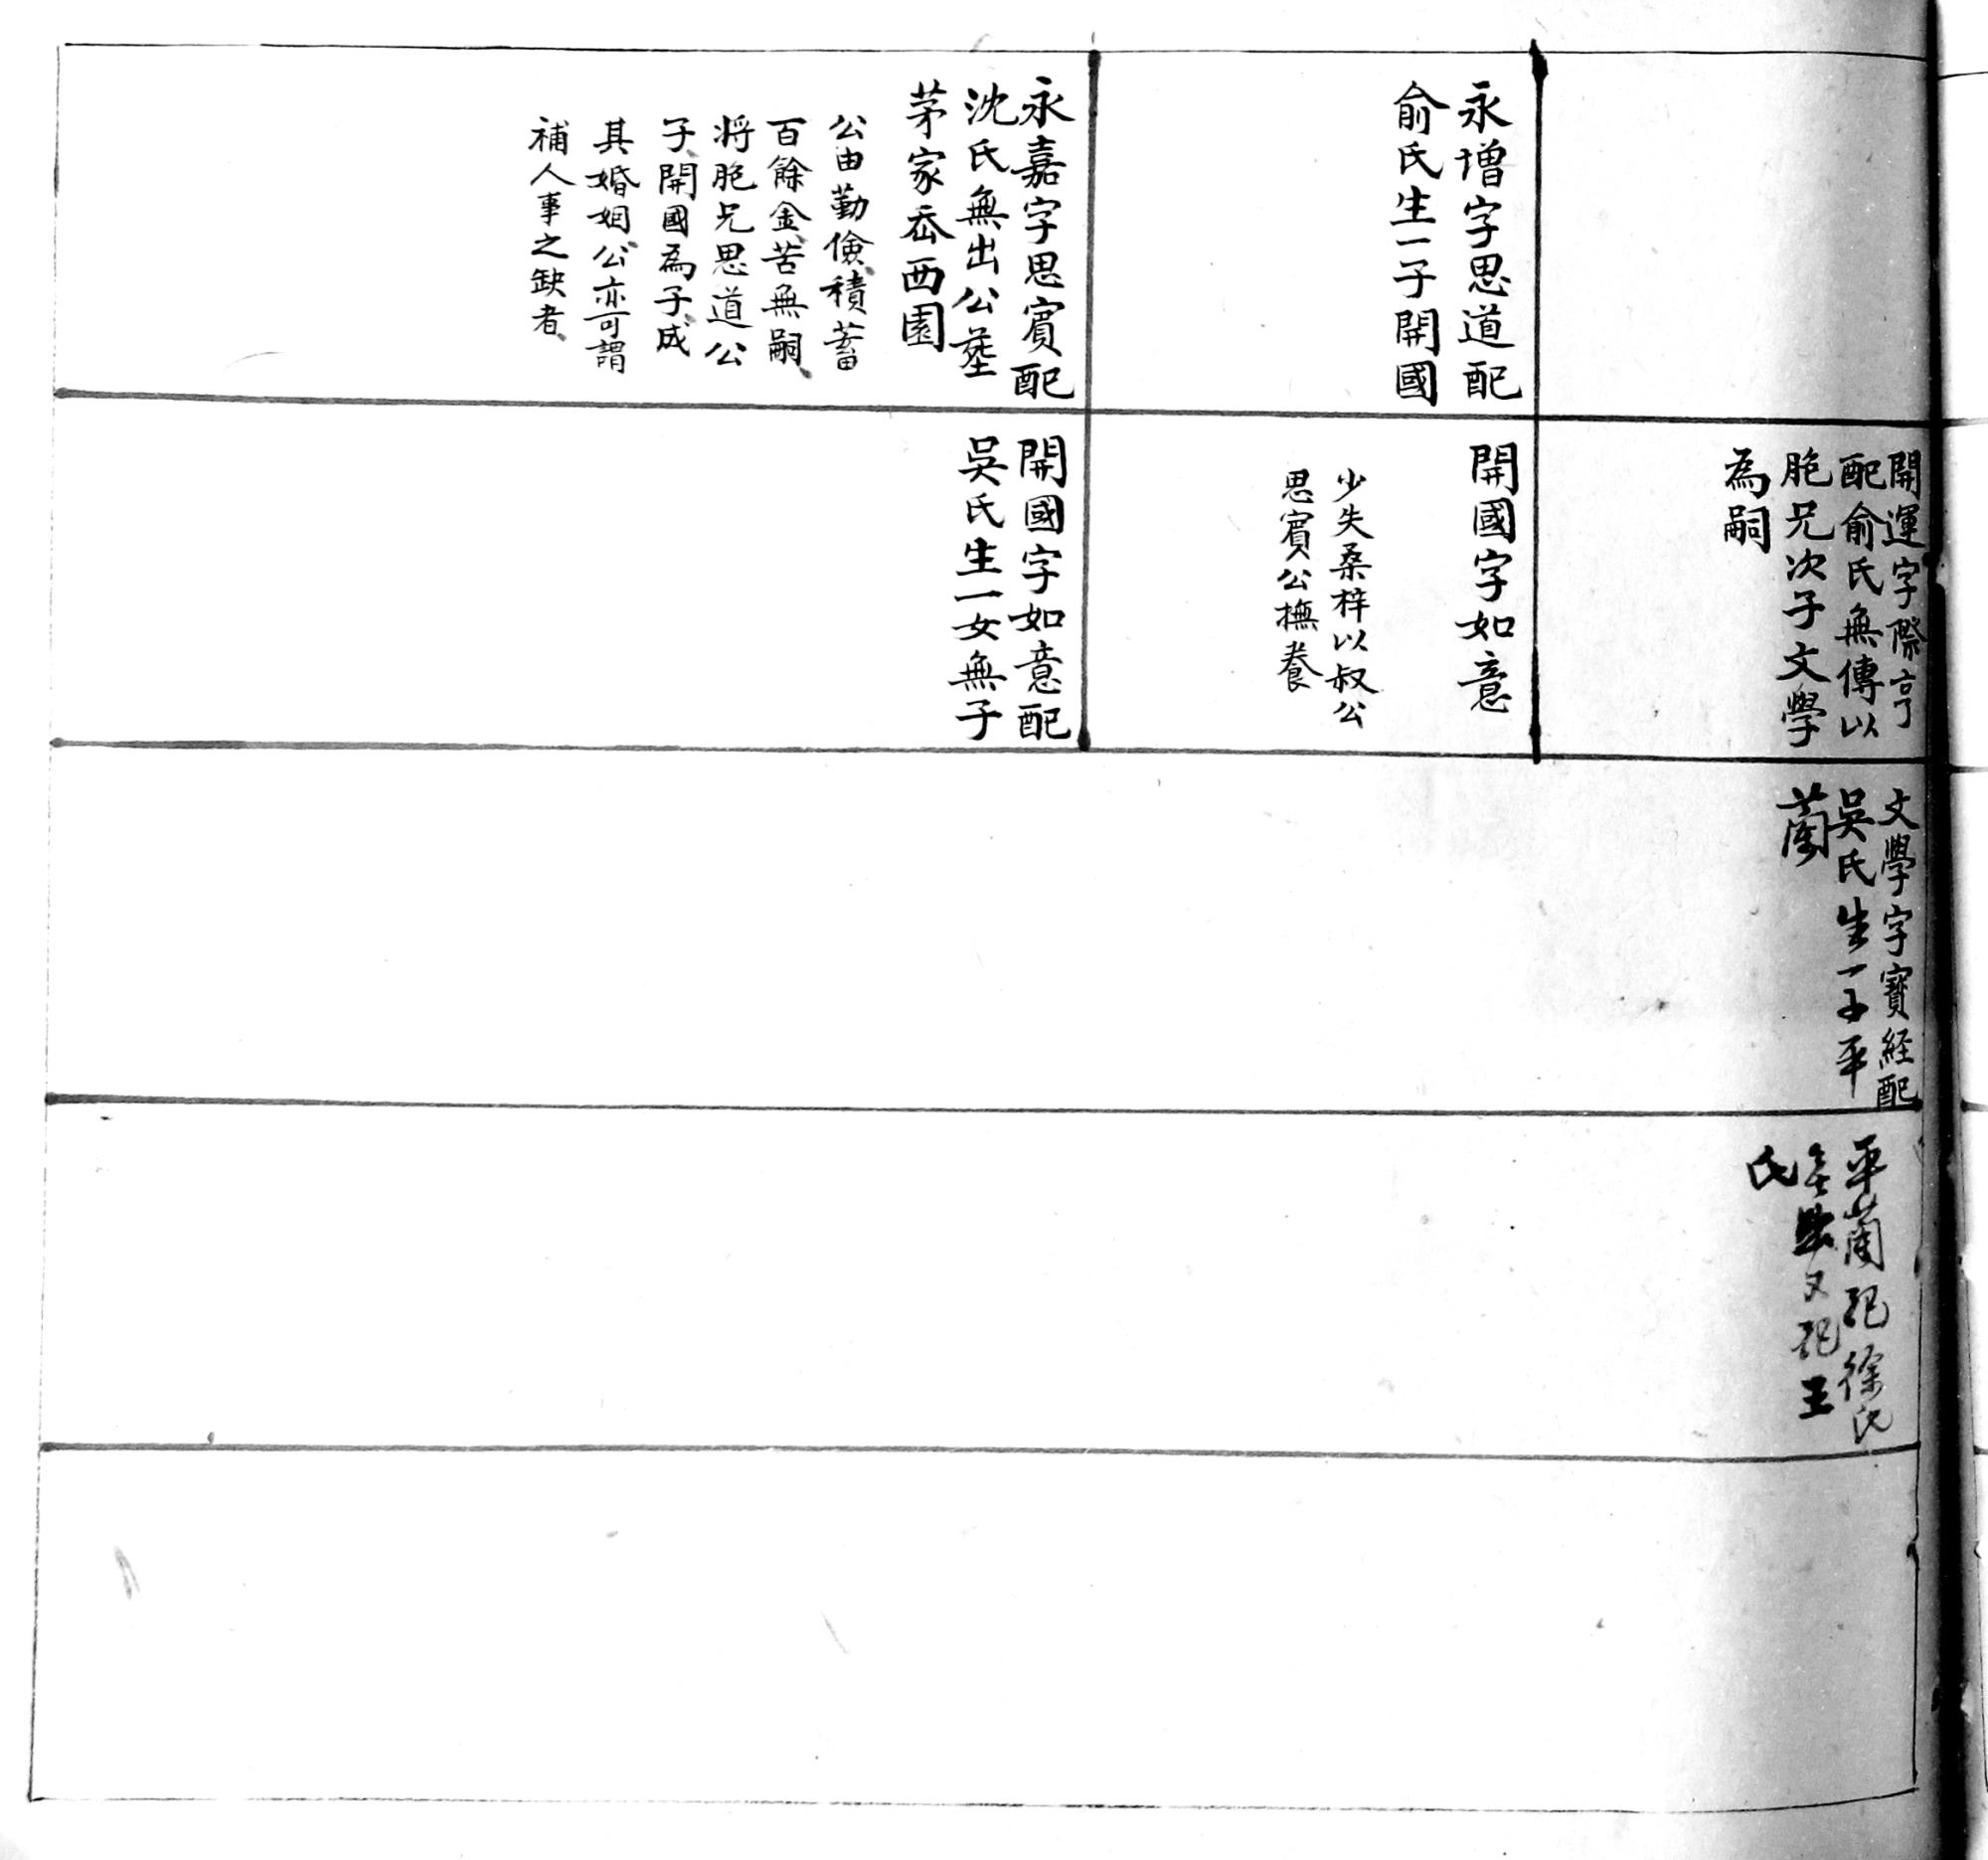 永增字思道配
俞氏生一子開國
永嘉字思賓配
沈氏無出公塟
茅家岙西園
公由勤儉積蓄
百餘金、苦無嗣、
将胞兄思道公
子、開國為子、成
其婚姻、公亦可謂
補人事之缺者、
開運字際亨
配俞氏無傳以
胞兄次子文學
為嗣
開國字如意
少失桑梓以叔公
思賓公撫養
開國字如意配
吳氏生一女無子
文學字寶經配
吳氏生一子平
蘭
平蘭配徐氏
又配王
氏